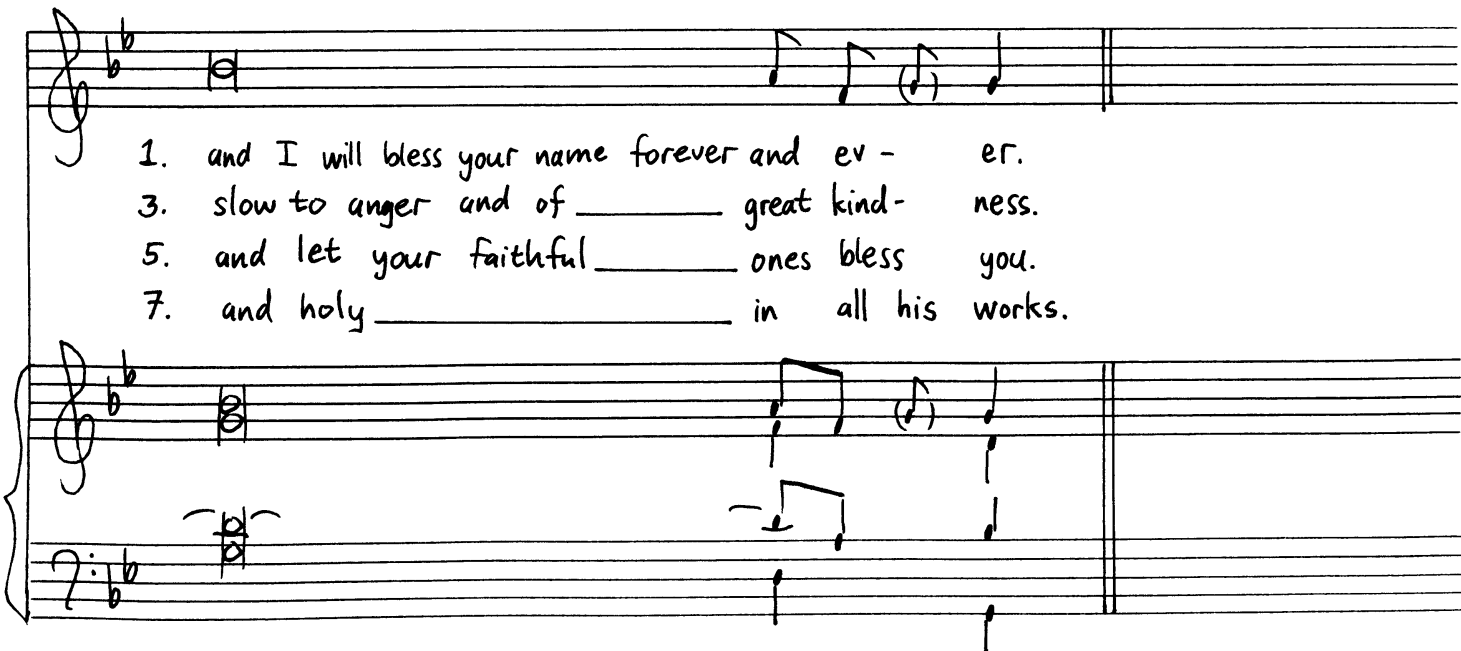 1. and I will bless your name forever and ev - er.
3. slow to anger and of ________ great kind- ness.
5. and let your faithful ________ ones bless you.
7. and holy ____________________ in all his works.